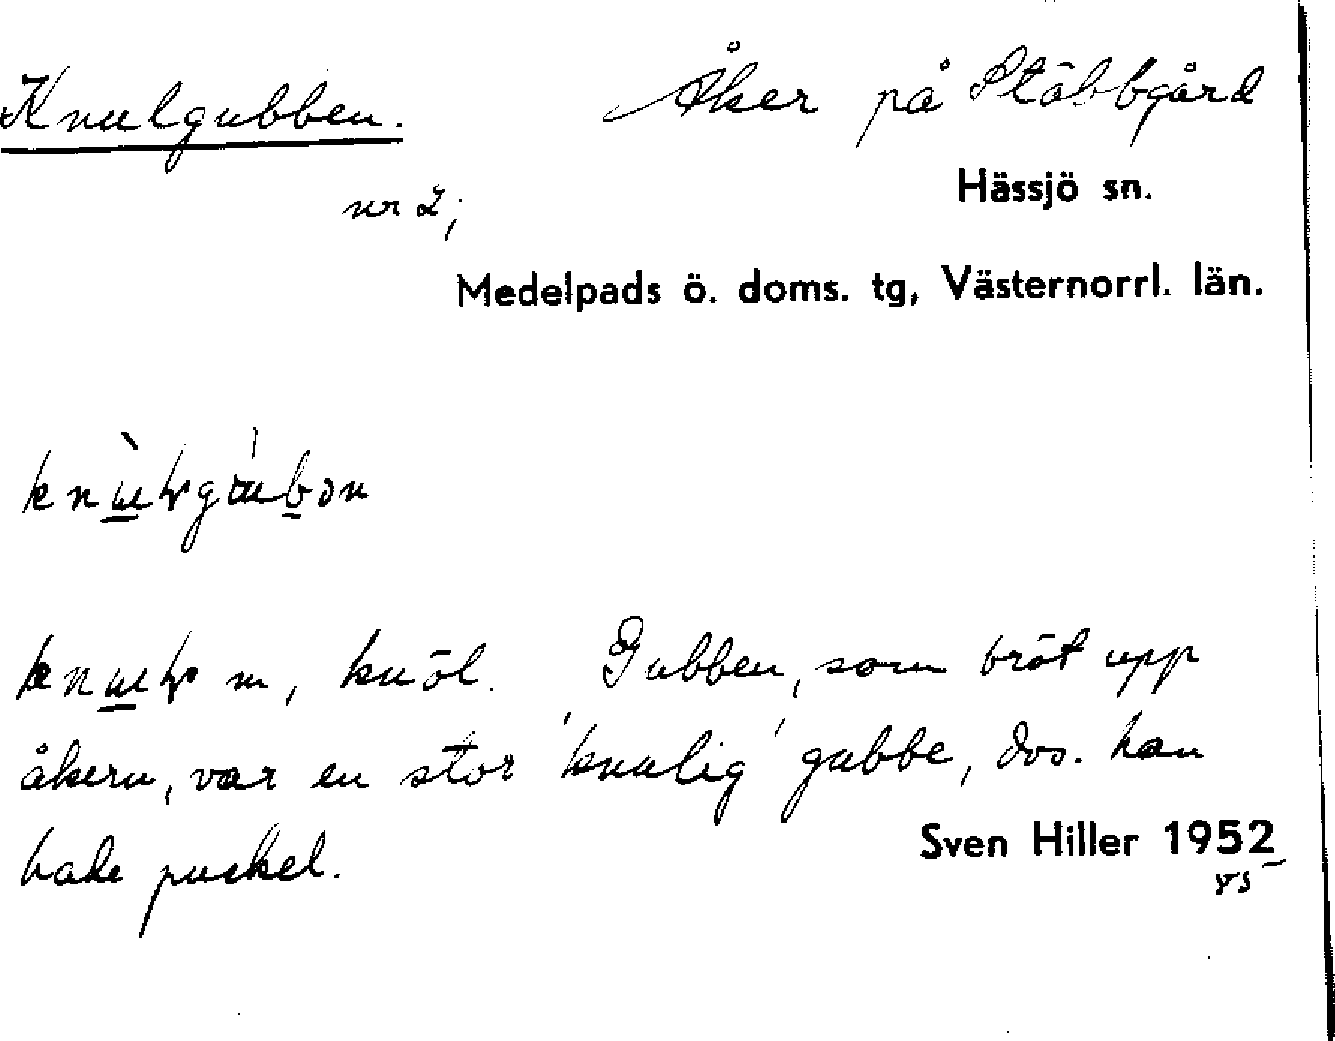 Knulgubben. Åker på Stäbbgård
nr 2; Hässjö sn.
Medelpads ö. doms. tg, Västernorrl. län.
m, knöl. Gubben, som bröt upp
åkern, var en stor 'knulig' gubbe, dvs. han
hade puckel.
Sven Hiller 1952